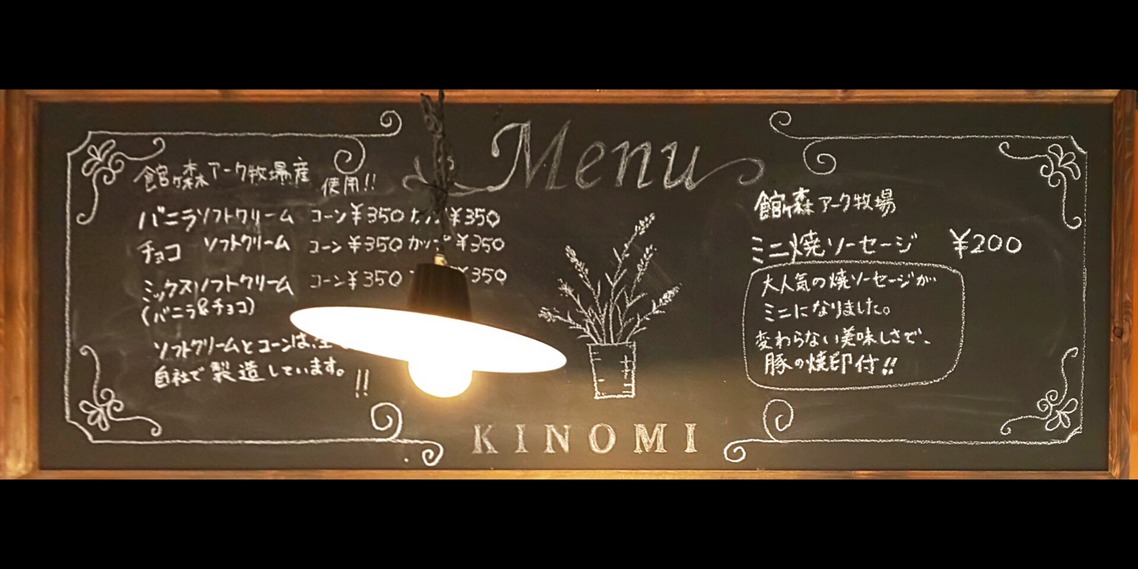 Menu
館ヶ森アーク牧場産
使用!!
バニラソフトクリーム コーン¥350 ¥350
チョコ ソフトクリーム コーン¥350 カップ ¥350
ミックスソフトクリーム コーン¥350 ¥350
(バニラ&チョコ)
ソフトクリームとコーンは、
自社で製造しています。!!
館ヶ森アーク牧場
ミニ焼ソーセージ ¥200
大人気の焼ソーセージが
ミニになりました。
変わらない美味しさで、
豚の焼印付!!
KINOMI